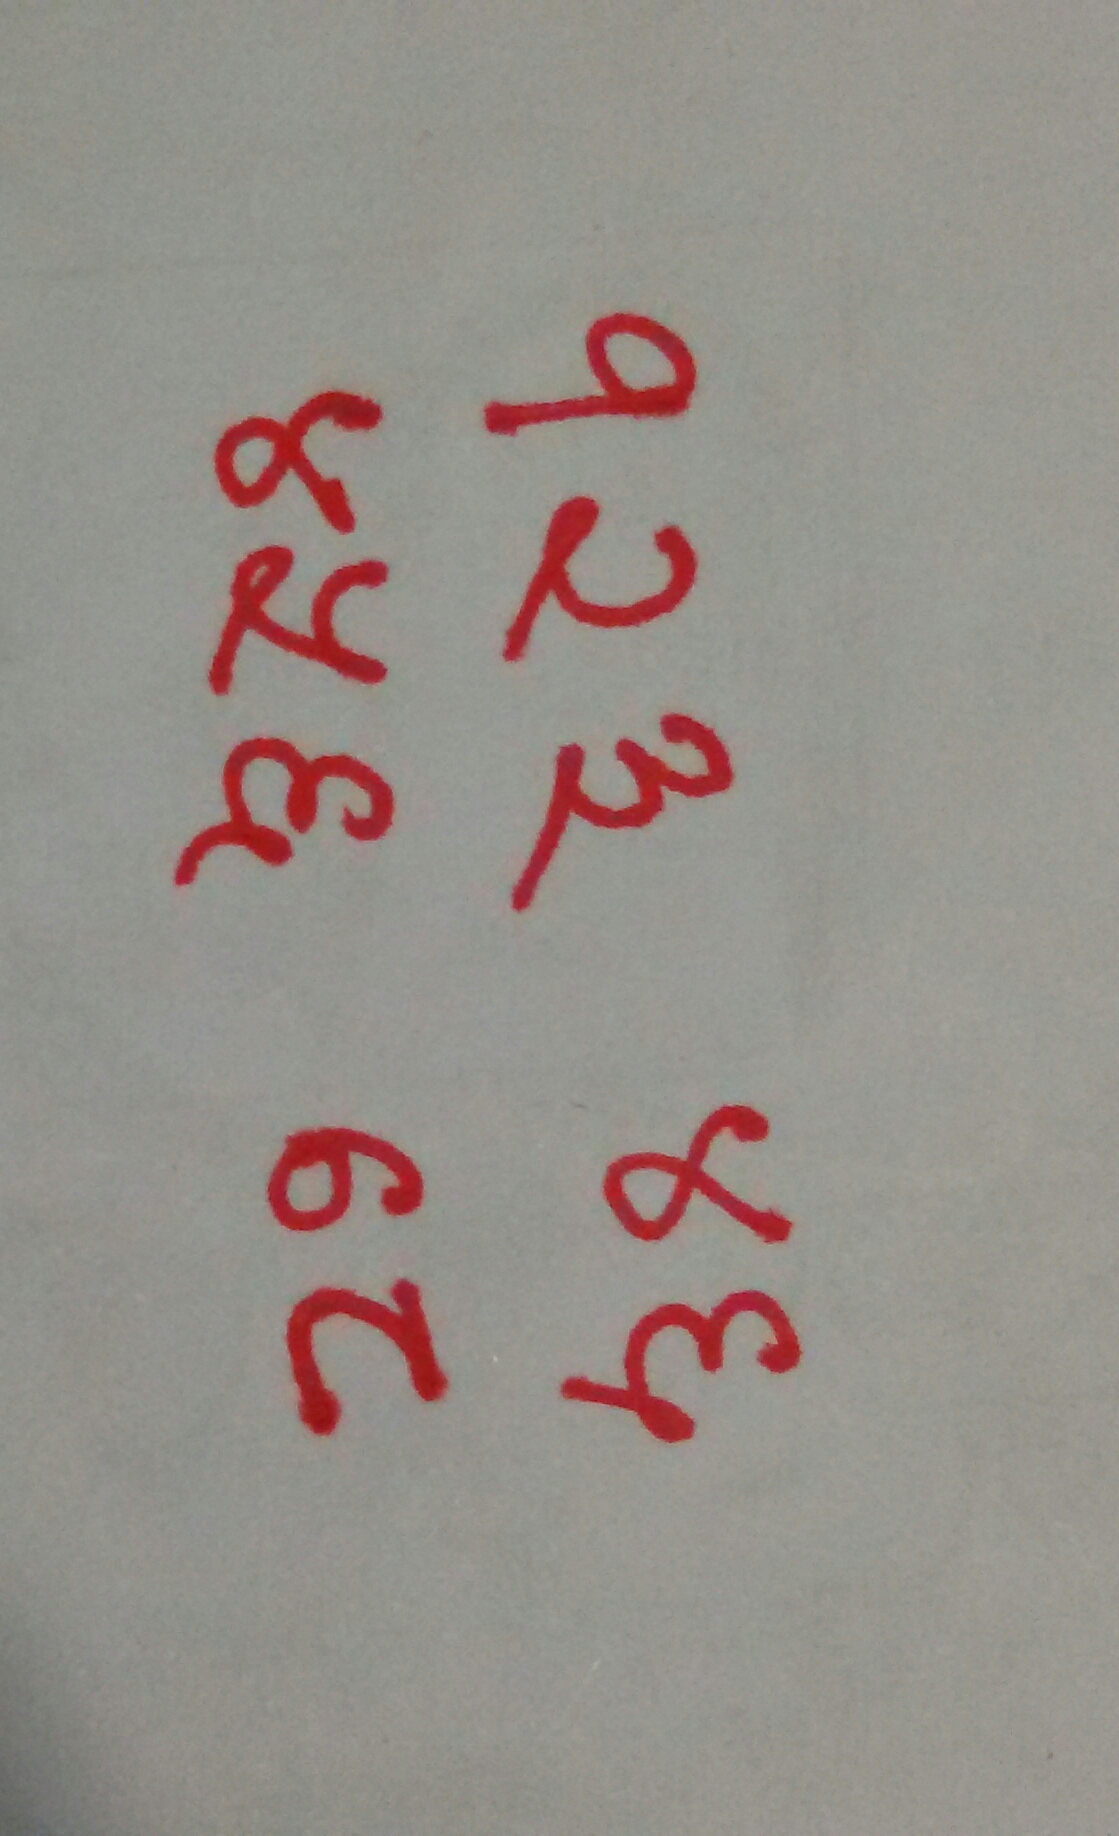 १२३ ४६
४५६ ७८